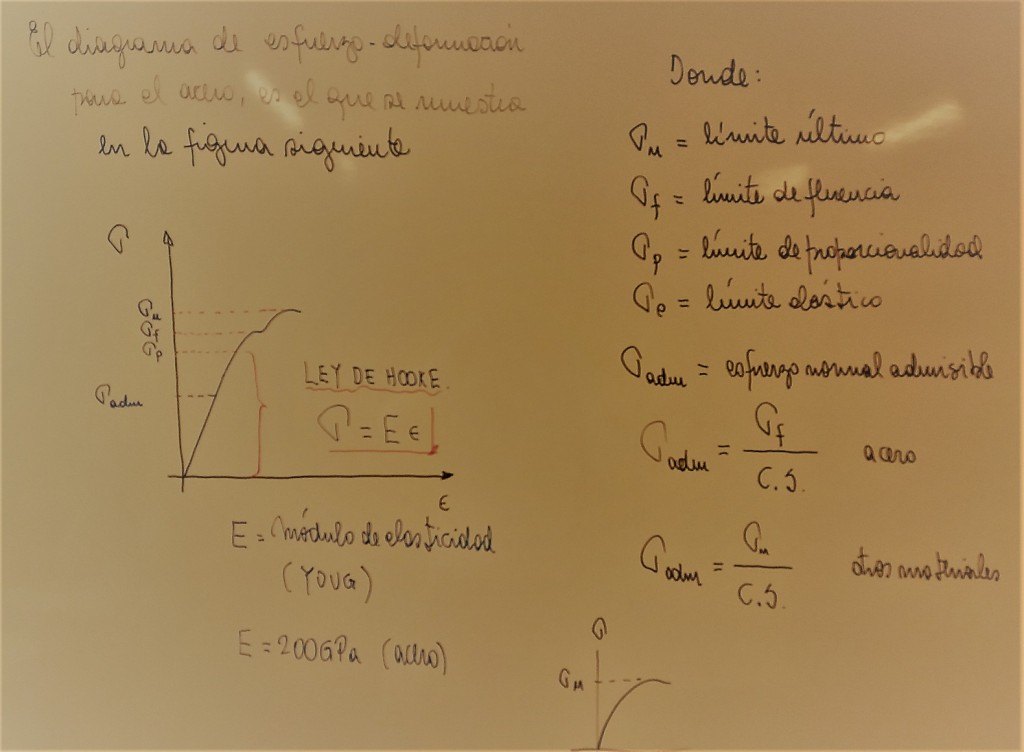 El diagrama de esfuerzo-deformación
para el acero, es el que se muestra
en la figura siguiente
σ
σu
σf
σp
σadm
LEY DE HOOKE.
σ = E ϵ
ϵ
E = Módulo de elasticidad
(YOUG)
E = 200GPa (acero)
Donde:
σu = límite último
σf = límite de fluencia
σp = límite de proporcionalidad
σe = límite elástico
σadm = esfuerzo normal admisible
σadm = σf / C.S. acero
σadm = σu / C.S. otros materiales
σ
σu